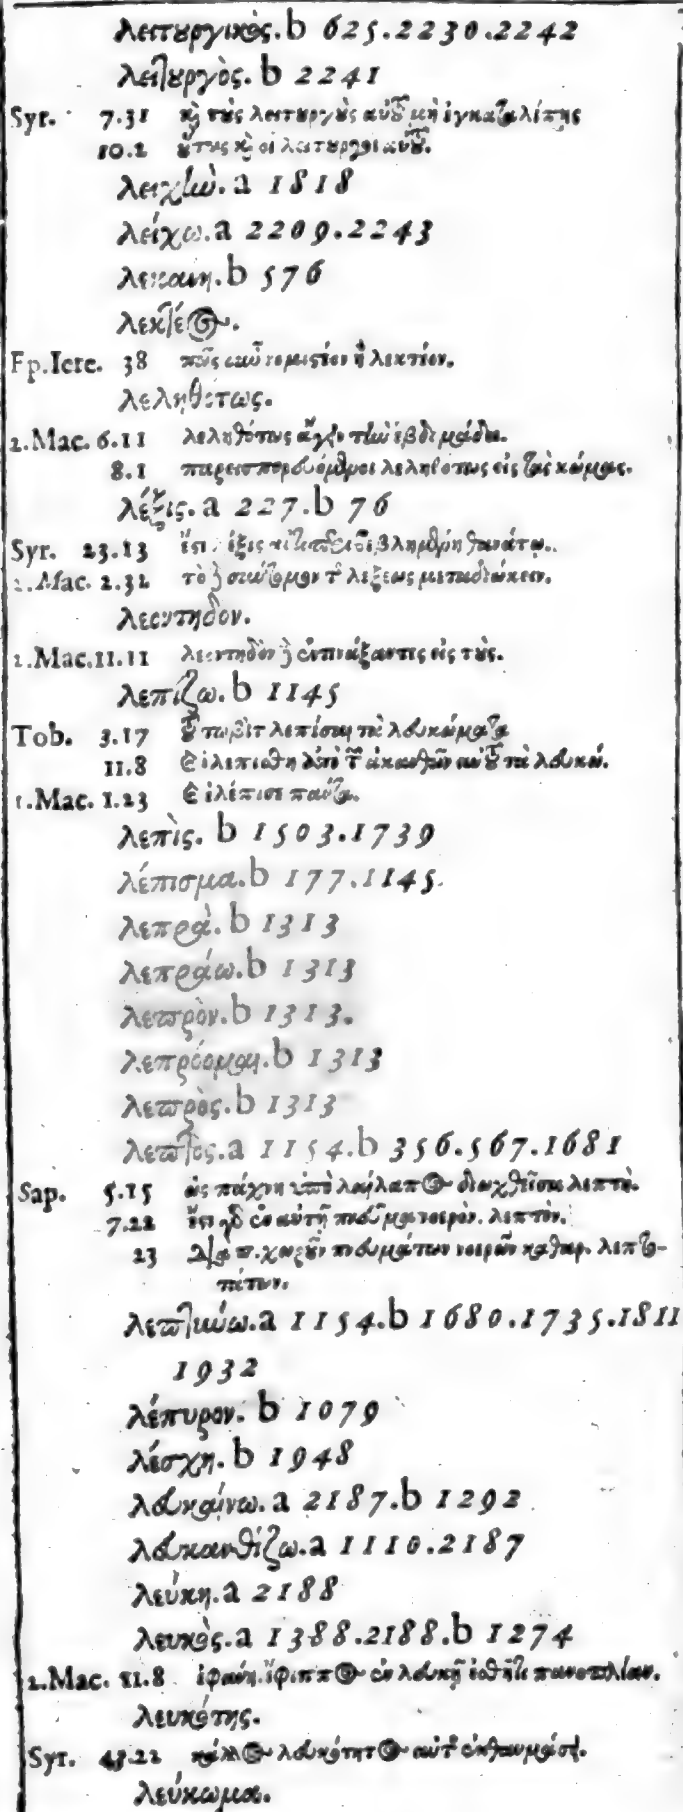 λειτουργικὸς. b 625.2230.2242
λειτουργὸς. b 2241
Syr. 7.31 καὶ τοὺς λειτουργοὺς αὐτοῦ μὴ ἐγκαταλίπῃς
10.2 οὕτως καὶ οἱ λειτουργοὶ αὐτοῦ.
λειχὴν. a 1818
λείχω. a 2209.2243
λεκάνη. b 576
λεκτέος.
Ep.Iere. 38 πῶς οὖν νομιστέον ἢ λεκτέον.
λεληθότως.
2.Mac. 6.11 λεληθότως ἄγειν τὴν ἑβδομάδα.
8.1 παρεισπορευόμενοι λεληθότως εἰς τὰς κώμας.
λέξις. a 227. b 76
Syr. 23.13 ἔστι λέξις θανάτῳ.
2.Mac. 2.32 τὸ σύντομον τῆς λέξεως μεταδιώκειν.
λεοντηδόν.
2.Mac. 11.11 λεοντηδὸν δὲ ἐντινάξαντες εἰς τοὺς.
λεπίζω. b 1145
Tob. 3.17 τοῦ τωβὶτ λεπίσαι τὰ λευκώματα
11.8 καὶ ἐλεπίσθη ἀπὸ τῶν ἀκανθῶν αὐτοῦ τὰ λευκώ.
1.Mac. 1.23 καὶ ἐλέπισε πάντα.
λεπὶς. b 1503.1739
λέπισμα. b 177.1145.
λεπρὰ. b 1313
λεπράω. b 1313
λεπρὸν. b 1313.
λεπρόομαι. b 1313
λεπρὸς. b 1313
λεπτὸς. a 1154. b 356.567.1681
Sap. 5.15 ὡς πάχνη ὑπὸ λαίλαπος διωχθεῖσα λεπτὴ.
7.22 ἔστι γὰρ ἐν αὐτῇ πνεῦμα νοερὸν. λεπτὸν.
23 διὰ π. χωροῦν πνευμάτων νοερῶν καθαρ. λεπτο-
τάτων.
λεπτύνω. a 1154. b 1680.1735.1811
1932
λέπυρον. b 1079
λέσχη. b 1948
λευκαίνω. a 2187. b 1292
λευκανθίζω. a 1110.2187
λεύκη. a 2188
λευκὸς. a 1388.2188. b 1274
2.Mac. 11.8 ἐφάνη. ἔφιππος ἐν λευκῇ ἐσθῆτι πανοπλίαν.
λευκότης.
Syr. 43.22 κάλλος λευκότητος αὐτῆς ἐκθαυμάσει.
λεύκωμα.